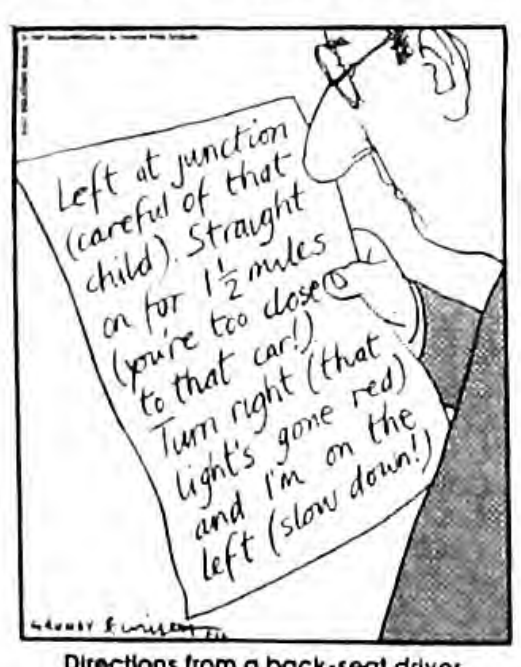 Left at junction
(careful of that
child). Straight
on for 1½ miles
(you're too close
to that car!)
Turn right (that
light's gone red)
and I'm on the
left (slow down!)
Directions from a back-seat driver